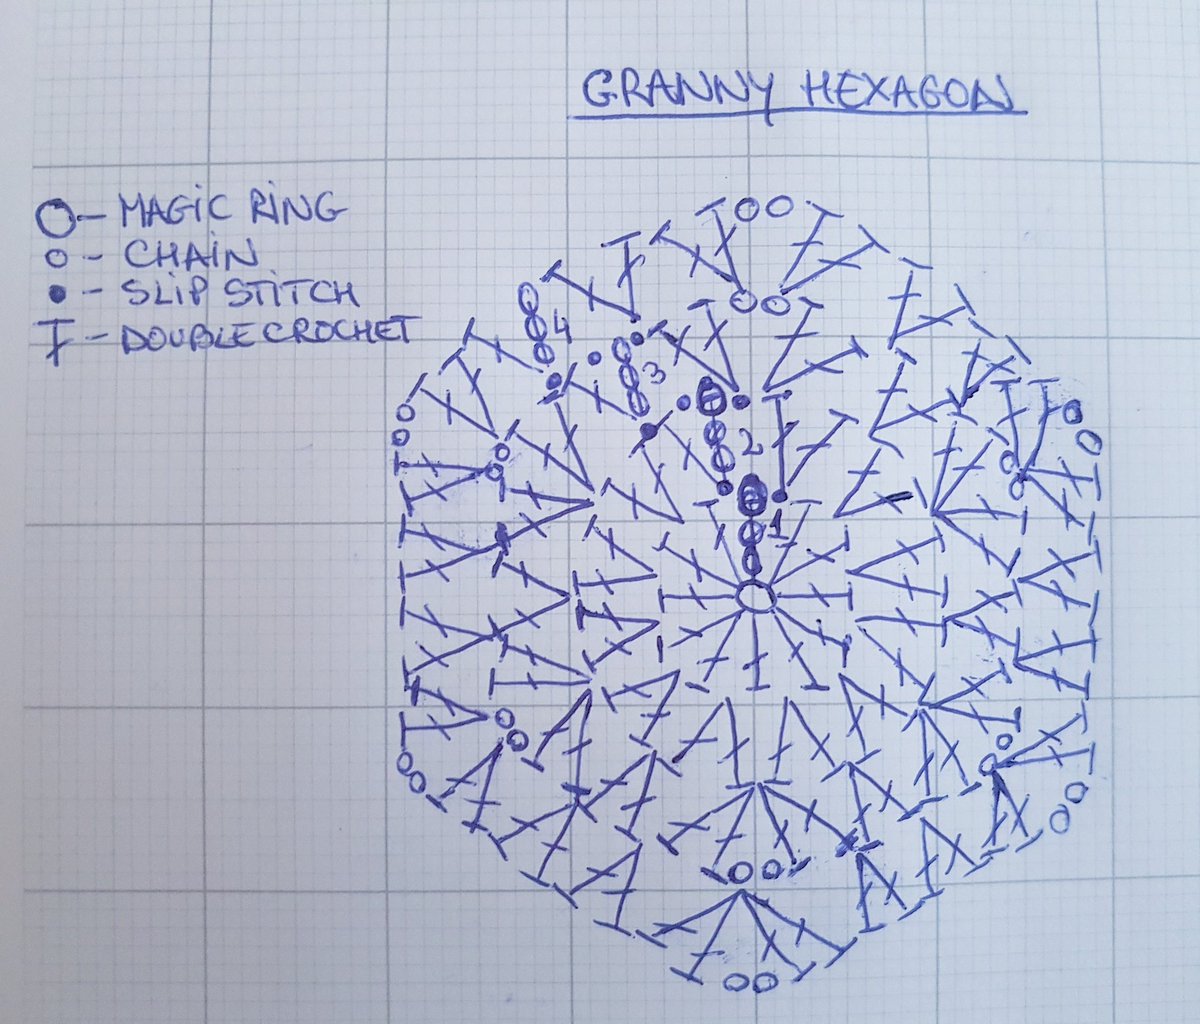 GRANNY HEXAGON
O - MAGIC RING
o - CHAIN
• - SLIP STITCH
Ŧ - DOUBLE CROCHET
4
3
2
1